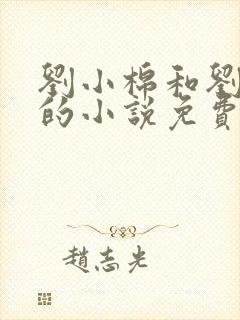 劉小棉和劉
的小說免費
趙志光